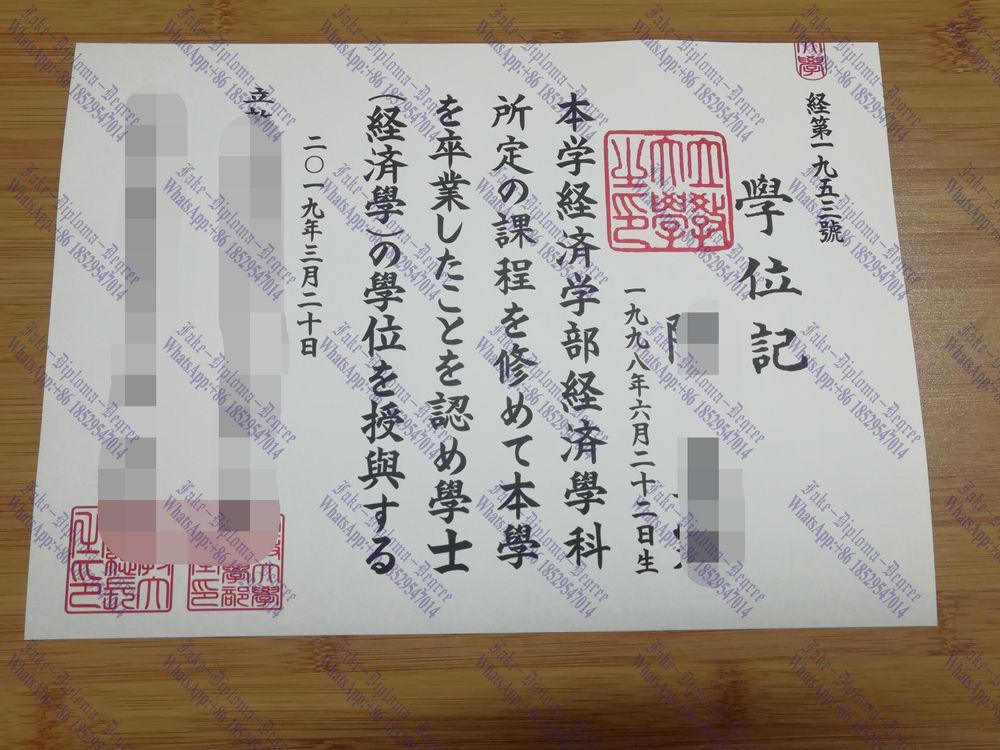 経第一九五三號
學位記
立教
大學
之印
一九九八年六月二十二日生
本学経済学部経済學科
所定の課程を修めて本學
を卒業したことを認め學士
(経済學)の學位を授與する
二〇一九年三月二十日
立
Fake-Diploma-Degree
WhatsApp:+86 18529547014